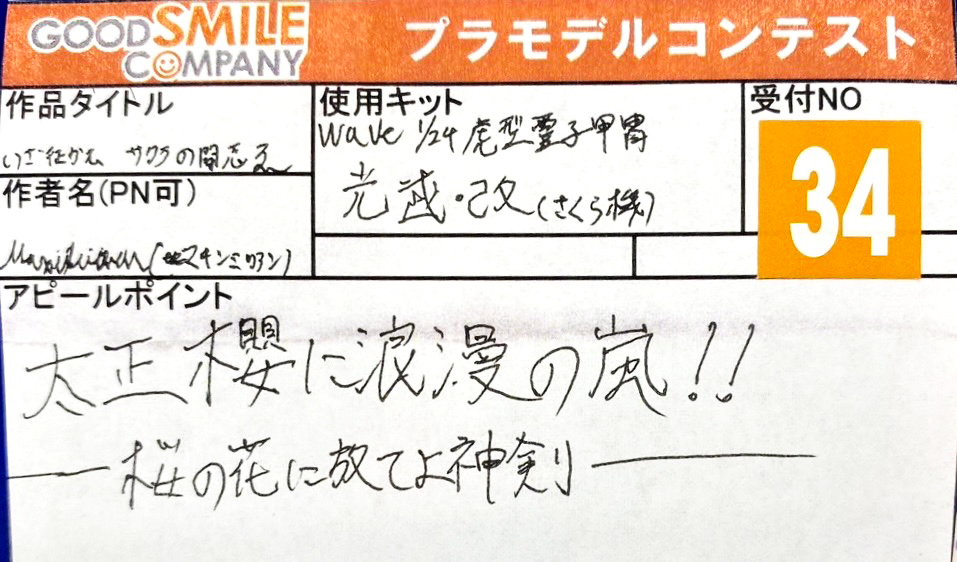 GOOD SMILE COMPANY
プラモデルコンテスト
作品タイトル
いざ征かん サクラの闘志
作者名(PN可)
(マキシミリアン)
使用キット
wave 1/24 虎型霊子甲冑
光武・改(さくら機)
受付NO
34
アピールポイント
太正櫻に浪漫の風!!
桜の花に放てよ神剣